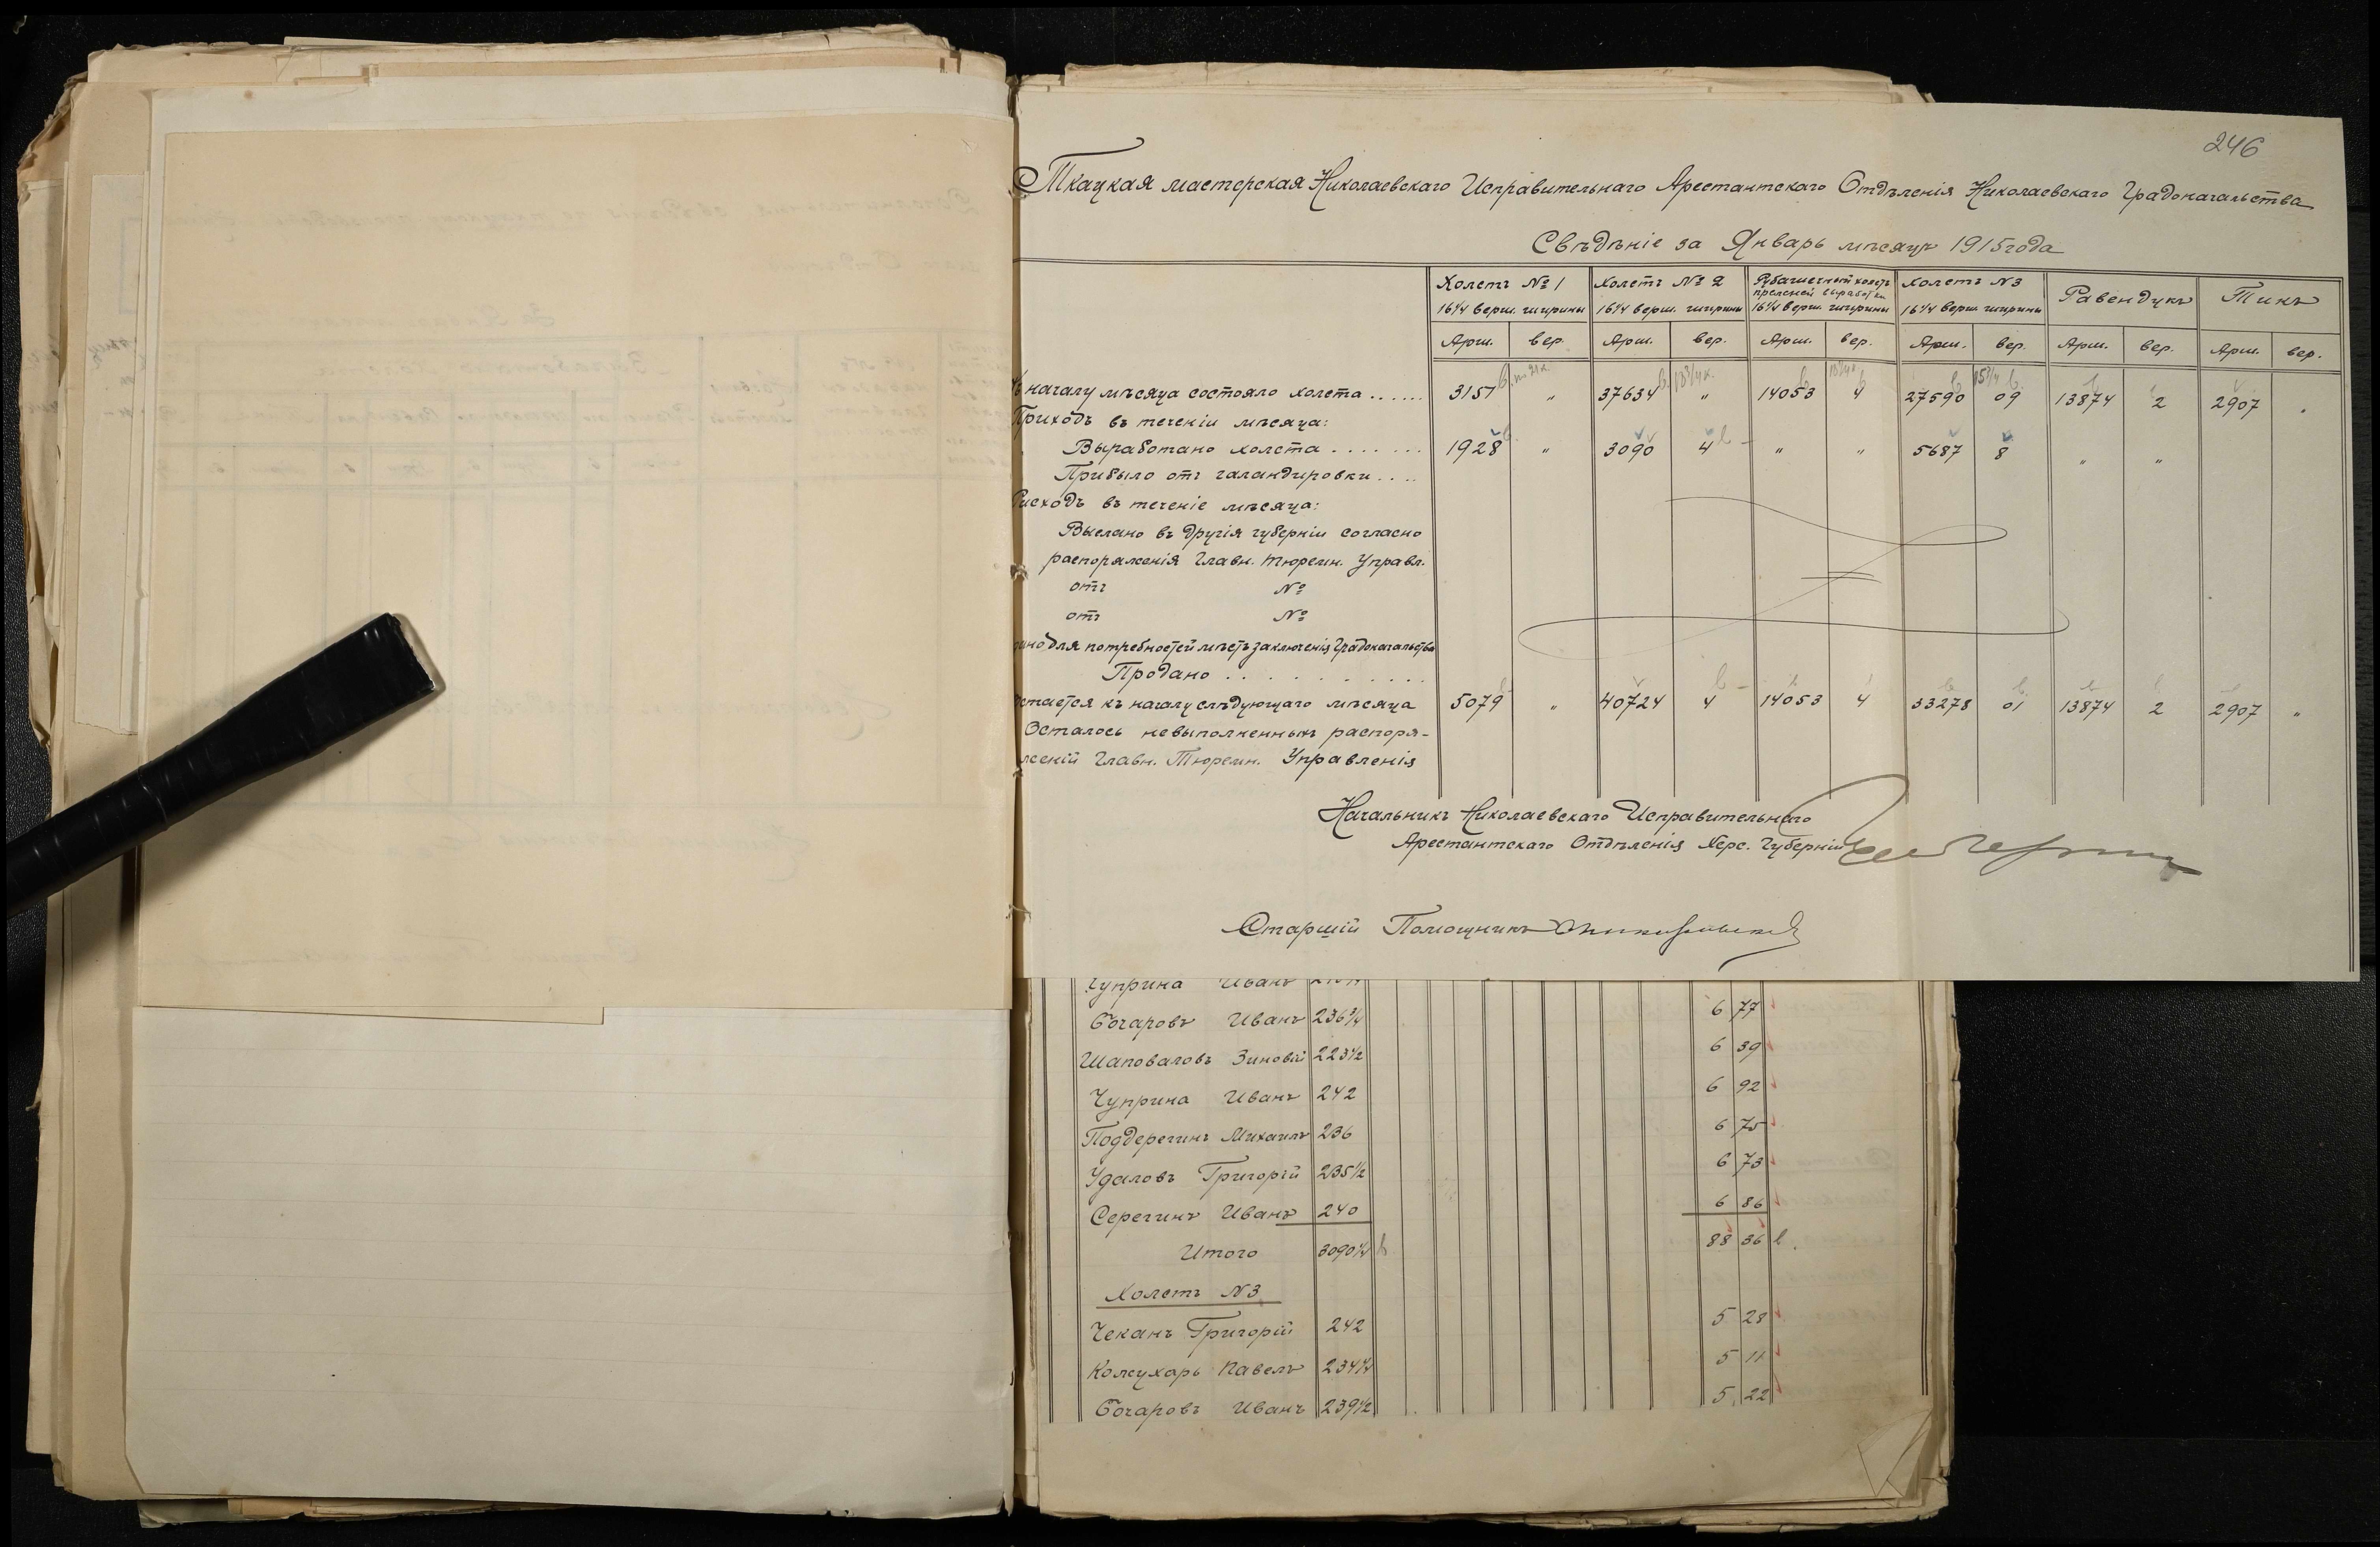 246
Ткацкая мастерская Николаевскаго Исправительнаго Арестантскаго Отдѣленія Николаевскаго Градоначальства
Свѣдѣніе за Январь мѣсяцъ 1915 года
Холстъ № 1 Холстъ № 2 Рубашечный холстъ Холстъ № 3 Равендукъ Тикъ
прежней выработки
16 1/4 верш. ширины 16 1/4 верш. ширины 16 1/4 верш. ширины 16 1/4 верш. ширины
Арш. вер. Арш. вер. Арш. вер. Арш. вер. Арш. вер. Арш. вер.
къ началу мѣсяца состояло холста . . . . . . 3151 " 37634 " 14053 4 27590 09 13874 2 2907 "
Приходъ въ теченіи мѣсяца:
Выработано холста . . . . . . . 1928 " 3090 4 " " 5687 8 " "
Прибыло отъ галандировки . . . .
Расходъ въ теченіе мѣсяца:
Выслано въ другія губерніи согласно
распоряженія Главн. Тюремн. Управл.
отъ №
отъ №
для потребностей мѣстъ заключенія Градоначальства
Продано . . . . . . . . . . .
Остается къ началу слѣдующаго мѣсяца 5079 " 40724 4 14053 4 33278 01 13874 2 2907 "
Осталось невыполненныхъ распоря-
женій Главн. Тюремн. Управленія
Начальникъ Николаевскаго Исправительнаго
Арестантскаго Отдѣленія Херс. Губерніи
Старшій Помощникъ
Чуприна Иванъ
Бочаровъ Иванъ 236 3/4 6 77
Шаповаловъ Зиновій 223 1/2 6 39
Чуприна Иванъ 242 6 92
Поддерегинъ Михаилъ 236 6 75
Удаловъ Григорій 235 1/2 6 73
Серегинъ Иванъ 240 6 86
Итого 3090 1/4 88 36
Холстъ № 3
Чеканъ Григорій 242 5 28
Кожухарь Павелъ 234 1/4 5 11
Бочаровъ Иванъ 239 1/2 5 22